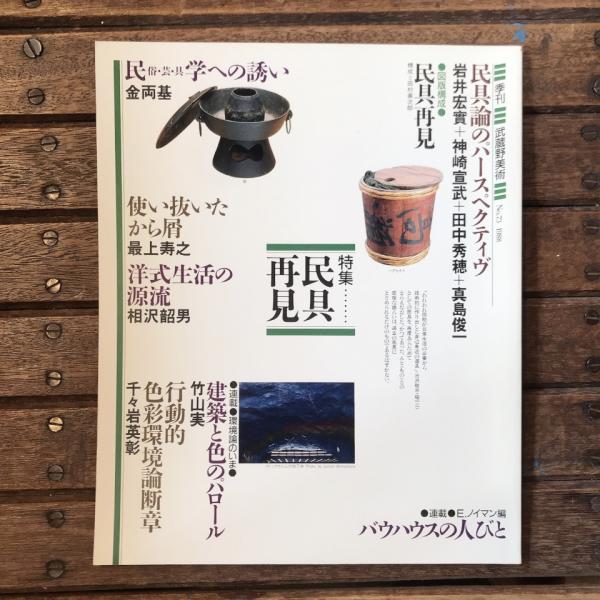 季刊 武蔵野美術 No.71 1988
民具論のパースペクティヴ
岩井宏實+神崎宣武+田中秀穂+真島俊一
●図版構成●
民具再見
構成・田村善次郎
民俗・芸・具学への誘い
金両基
使い抜いた
から屑
最上寿之
洋式生活の
源流
相沢韶男
特集………
民具
再見
●連載●環境論のいま●
建築と色のパロール
竹山実
行動的
色彩環境論断章
千々岩英彰
●連載●E.ノイマン編
バウハウスの人びと